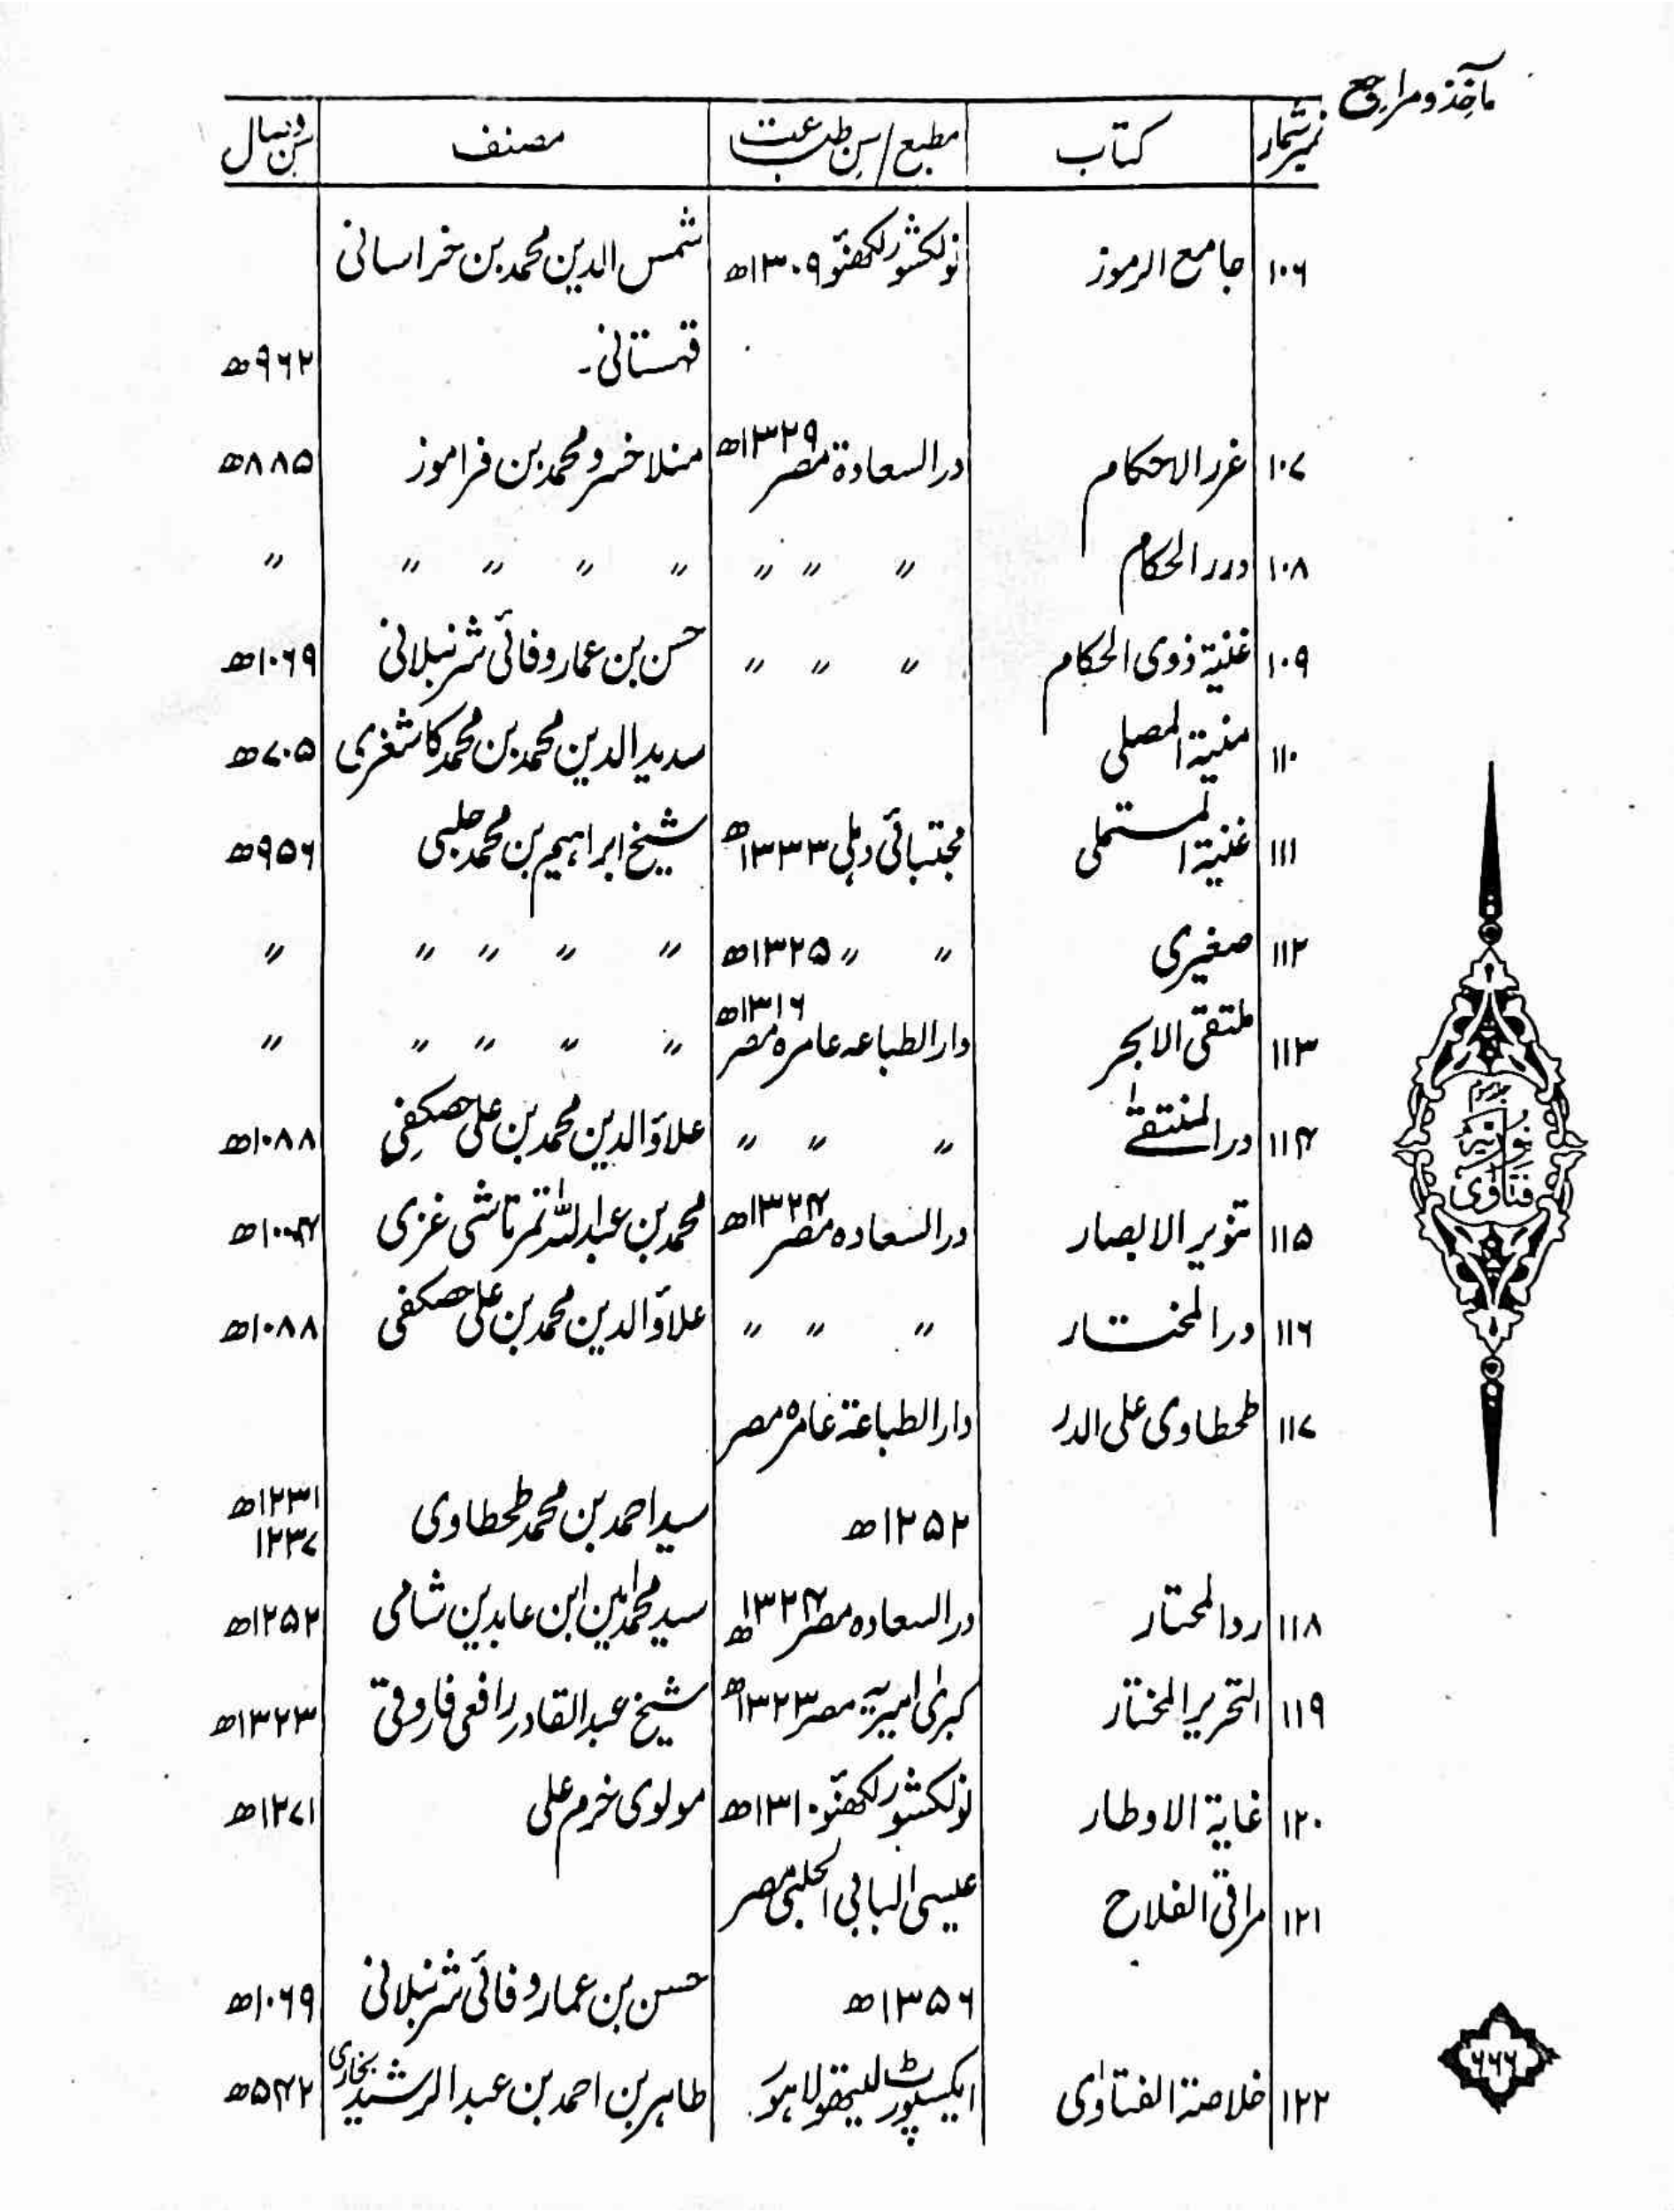 مآخذ و مراجع
نمبر شمار کتاب مطبع/سن طباعت مصنف سن وصال
۱۰۶ جامع الرموز نولکشور لکھنؤ ۱۳۰۹ھ شمس الدین محمد بن خراسانی
قہستانی۔ ۹۶۲ھ
۱۰۷ غرر الاحکام در السعادة مصر ۱۳۲۹ھ منلا خسرو محمد بن فراموز ۸۸۵ھ
۱۰۸ درر الحکام 〃 〃 〃 〃 〃 〃 〃 〃
۱۰۹ غنیۃ ذوی الحکام 〃 〃 〃 حسن بن عمار وفائی شرنبلانی ۱۰۶۹ھ
۱۱۰ منیۃ المصلی سدید الدین محمد بن محمد کاشغری ۷۰۵ھ
۱۱۱ غنیۃ المستملی مجتبائی دہلی ۱۳۳۳ھ شیخ ابراہیم بن محمد حلبی ۹۵۶ھ
۱۱۲ صغیری 〃 〃 ۱۳۲۵ھ 〃 〃 〃 〃 〃
۱۱۳ ملتقی الابحر دار الطباعہ عامرہ مصر ۱۳۱۶ھ 〃 〃 〃 〃 〃
۱۱۴ در المنتقےٰ 〃 〃 〃 علاؤ الدین محمد بن علی حصکفِی ۱۰۸۸ھ
۱۱۵ تنویر الابصار در السعادہ مصر ۱۳۲۴ھ محمد بن عبد اللہ تمرتاشی غزی ۱۰۰۴ھ
۱۱۶ در المختار 〃 〃 〃 علاؤ الدین محمد بن علی حصکفی ۱۰۸۸ھ
۱۱۷ طحطاوی علی الدر دار الطباعۃ عامرہ مصر
۱۲۵۲ھ سید احمد بن محمد طحطاوی ۱۲۳۱ھ
۱۲۳۷
۱۱۸ رد المحتار در السعادہ مصر ۱۳۲۴ھ سید محمد امین ابن عابدین شامی ۱۲۵۲ھ
۱۱۹ التحریر المختار کبریٰ امیریہ مصر ۱۳۲۳ھ شیخ عبد القادر رافعی فاروقی ۱۳۲۳ھ
۱۲۰ غایۃ الاوطار نولکشور لکھنؤ ۱۳۱۰ھ مولوی خرم علی ۱۲۷۱ھ
۱۲۱ مراقی الفلاح عیسیٰ البابی الحلبی مصر
۱۳۵۶ھ حسن بن عمار وفائی شرنبلانی ۱۰۶۹ھ
۱۲۲ خلاصۃ الفتاوٰی ایکسپورٹ لیتھو لاہور۔ طاہر بن احمد بن عبد الرشید بخاری ۵۴۲ھ
فتاوی نوریہ
۶۶۶